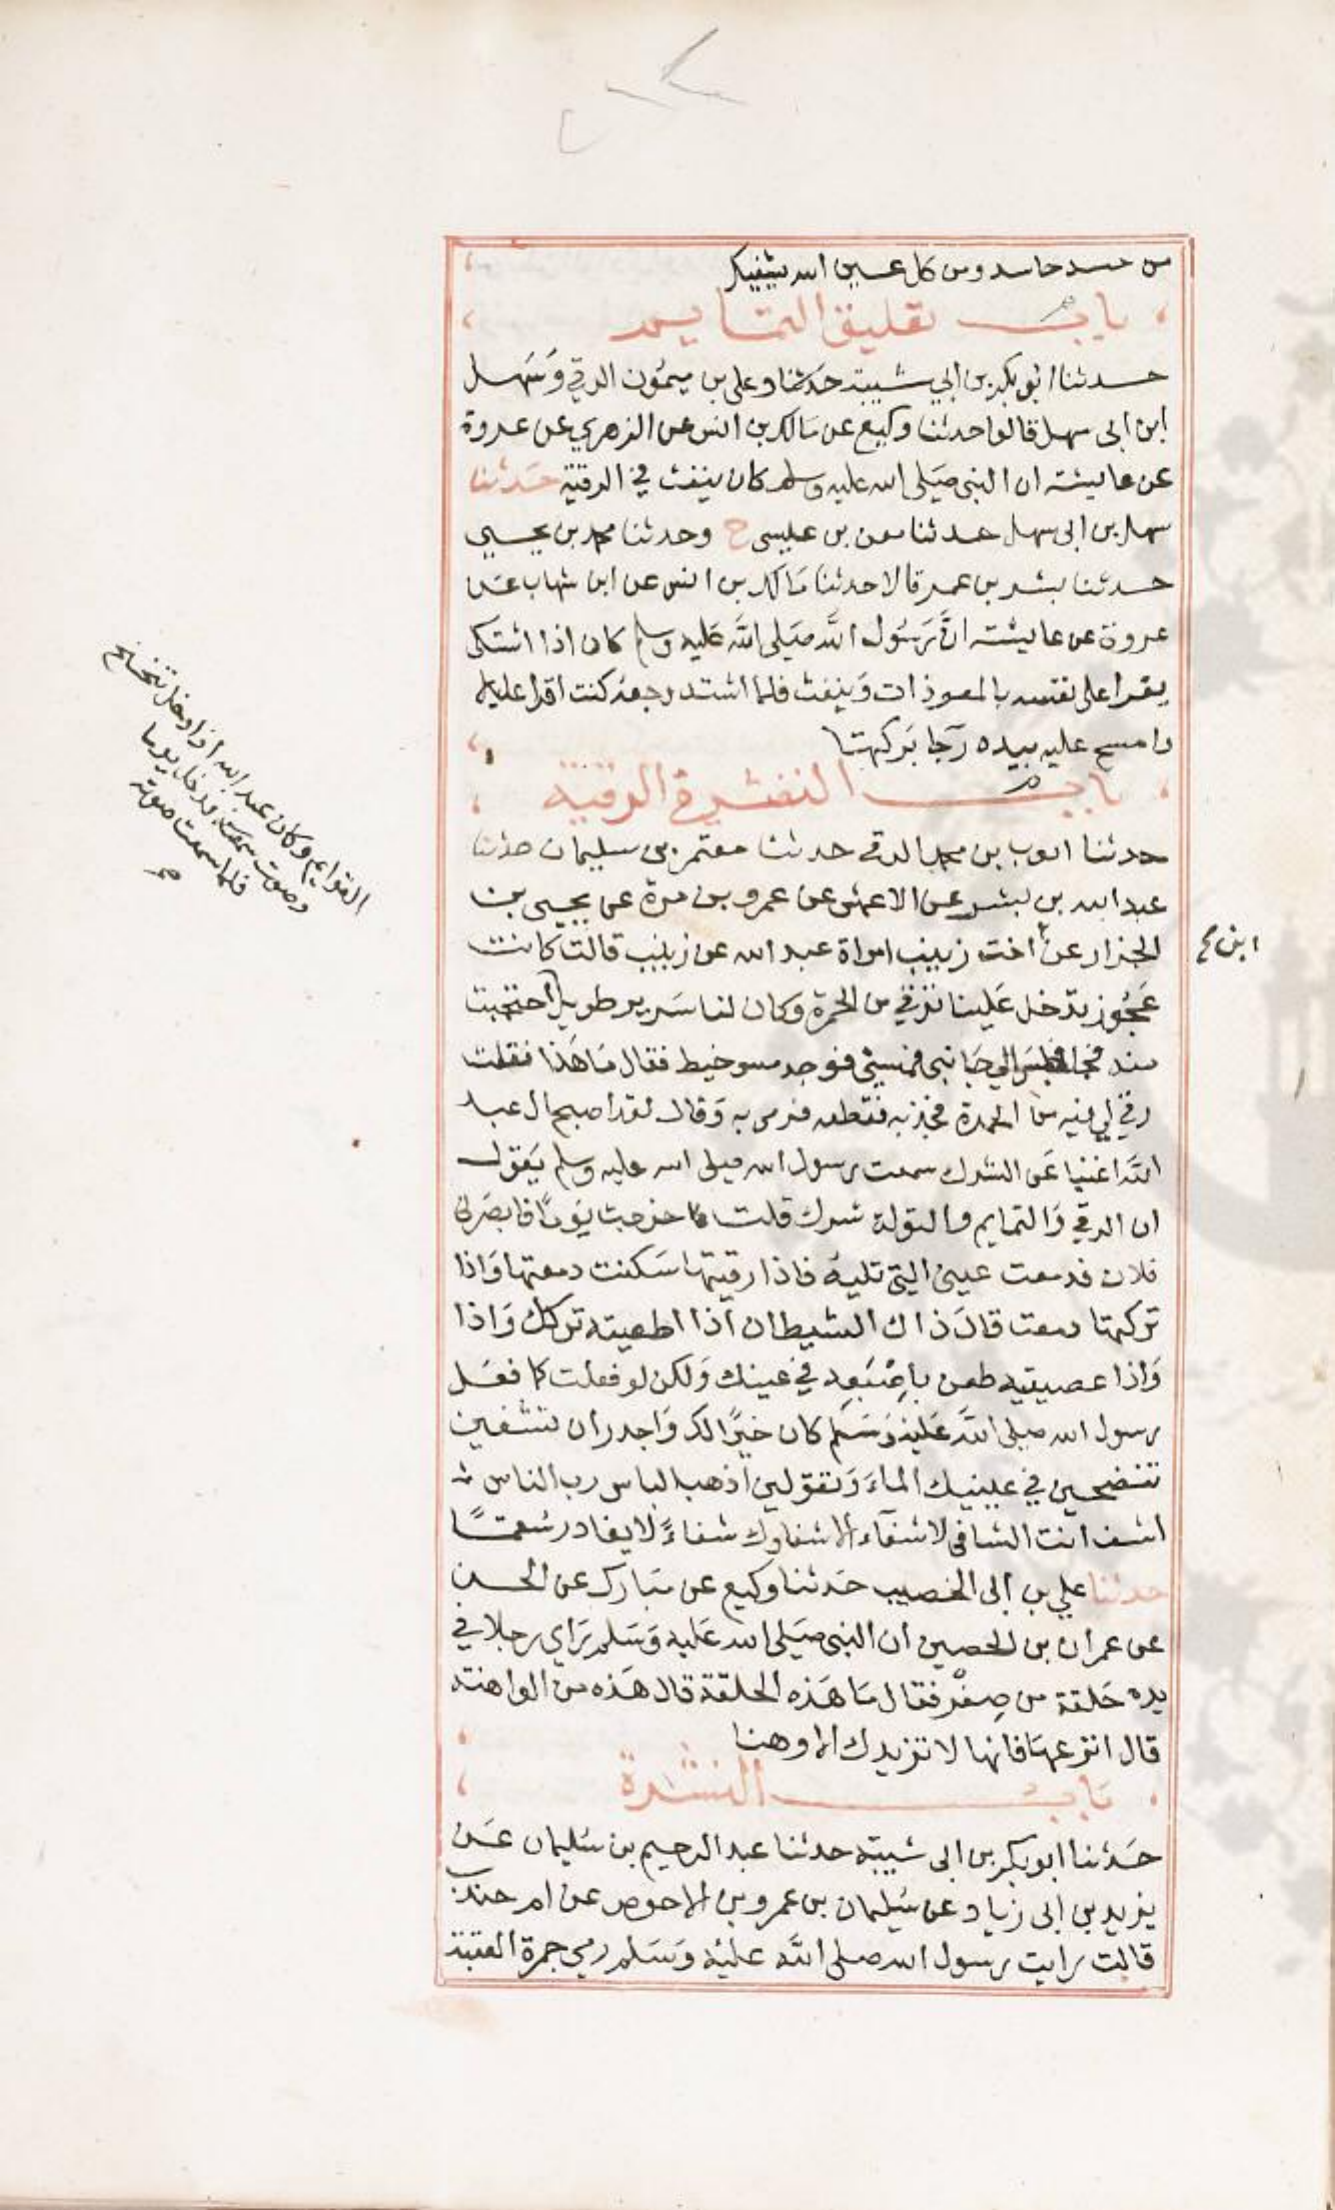 من حسد حاسد ومن كل عين الله يشفيك
باب تعليق التمايم
حدثنا ابو بكر بن ابي شيبة حدثنا وعلي بن ميمون الرقي وسهل
ابن ابي سهل قالوا حدثنا وكيع عن مالك بن انس عن الزهري عن عروة
عن عايشة ان النبي صلى الله عليه وسلم كان ينفث في الرقية حدثنا
سهل بن ابي سهل حدثنا معن بن عيسى ح وحدثنا محمد بن يحيى
حدثنا بشر بن عمر قالا حدثنا مالك بن انس عن ابن شهاب عن
عروة عن عايشة ان رسول الله صلى الله عليه وسلم كان اذا اشتكى
يقرا على نفسه بالمعوذات وينفث فلما اشتد وجعه كنت اقرا عليه
وامسح عليه بيده رجا بركتها
باب النفث في الرقية
حدثنا ايوب بن محمد الرقي حدثنا معتمر بن سليمان حدثنا
عبد الله بن بشر عن الاعمش عن عمرو بن مرة عن يحيى بن
الجزار عن اخت زينب امراة عبد الله عن زينب قالت كانت
ابن صح
عجوز تدخل علينا ترقي من الحمرة وكان لنا سرير طويل
القوايم وكان عبد الله اذا دخل تنحنح
وصوت سمعته فدخل يوما
فلما سمعت صوته
صح
احتجبت
منه فجا فجلس الي جانبي فمسني فوجد مس خيط فقال ما هذا فقلت
رقي لي فيه من الحمرة فجذبه فقطعه فرمى به وقال لقد اصبح ال عبد
الله اغنيا عن الشرك سمعت رسول الله صلى الله عليه وسلم يقول
ان الرقي والتمايم والتولة شرك قلت فاخرجت يوما فابصرني
فلان فدمعت عيني التي تليه فاذا رقيتها سكنت دمعتها واذا
تركتها دمعت قال ذاك الشيطان اذا اطعيته تركك واذا
واذا عصيتيه طعن باصبعه في عينك ولكن لو فعلت كما فعل
رسول الله صلى الله عليه وسلم كان خيرا لك واجدر ان تشفين
تنضحين في عينيك الماء وتقولين اذهب الباس رب الناس
اشف انت الشافي لا شفاء الا شفاوك شفاءً لا يغادر سقما
حدثنا علي بن ابي الخصيب حدثنا وكيع عن مبارك عن الحسن
عن عمران بن الحصين ان النبي صلى الله عليه وسلم راي رجلا في
يده حلقة من صفر فقال ما هذه الحلقة قال هذه من الواهنة
قال انزعها فانها لا تزيدك الا وهنا
باب النشرة
حدثنا ابو بكر بن ابي شيبة حدثنا عبد الرحيم بن سليمان عن
يزيد بن ابي زياد عن سليمان بن عمرو بن الاحوص عن ام جندب
قالت رايت رسول الله صلى الله عليه وسلم رمي جمرة العقبة